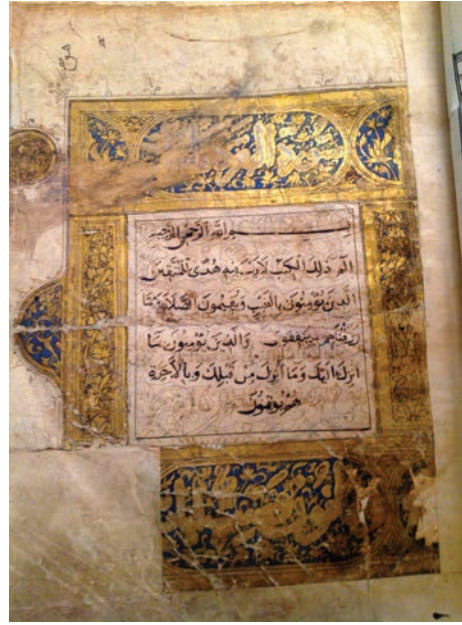 بسم الله الرحمن الرحيم
الم ذلك الكتب لا ريب فيه هدى للمتقين
الذين يؤمنون بالغيب ويقيمون الصلاة ومما
رزقناهم ينفقون والذين يؤمنون بما
انزل اليك وما أنزل من قبلك وبالآخرة
هم يوقنون